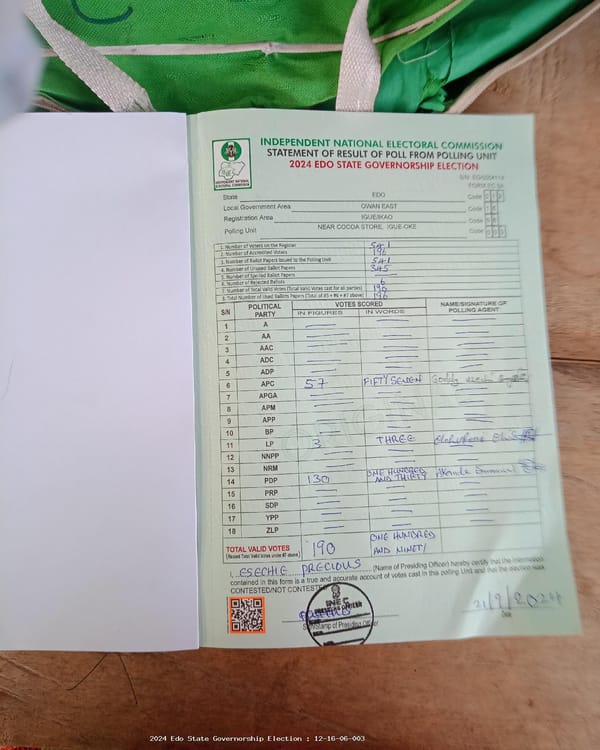 C
INDEPENDENT NATIONAL ELECTORAL COMMISSION
STATEMENT OF RESULT OF POLL FROM POLLING UNIT
2024 EDO STATE GOVERNORSHIP ELECTION
INDEPENDENT NATIONAL ELECTORAL COMMISSION
FORM EC 8A
State EDO Code
Local Government Area OWAN EAST Code
Registration Area IGUE/IKAO Code
Polling Unit NEAR COCOA STORE, IGUE-OKE Code
1. Number of Voters on the Register 541
2. Number of Accredited Voters 196
3. Number of Ballot Papers Issued to the Polling Unit 541
4. Number of Unused Ballot Papers 345
5. Number of Spoiled Ballot Papers —
6. Number of Rejected Ballots 6
7. Number of Total Valid Votes (Total Valid Votes cast for all parties) 190
8. Total Number of Used Ballots Papers (Total of #5 + #6 + #7 above) 196
S/N POLITICAL PARTY VOTES SCORED NAME/SIGNATURE OF POLLING AGENT
IN FIGURES IN WORDS
1 A
2 AA
3 AAC
4 ADC
5 ADP
6 APC 57 FIFTY SEVEN
7 APGA
8 APM
9 APP
10 BP
11 LP 3 THREE
12 NNPP
13 NRM
14 PDP 130 ONE HUNDRED AND THIRTY
15 PRP
16 SDP
17 YPP
18 ZLP
TOTAL VALID VOTES 190 ONE HUNDRED AND NINETY
(Record Total Valid Votes under #7 above)
I, ESECHIE PRECIOUS (Name of Presiding Officer) hereby certify that the information
contained in this form is a true and accurate account of votes cast in this polling Unit and that the election was
CONTESTED/NOT CONTESTED
INEC
PRESIDING OFFICER
Sign/Stamp of Presiding Officer
21/9/2024
Date
2024 Edo State Governorship Election : 12-16-06-003